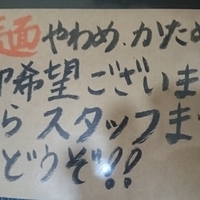 麺やわめ、かため
希望ございま
らスタッフま
どうぞ!!